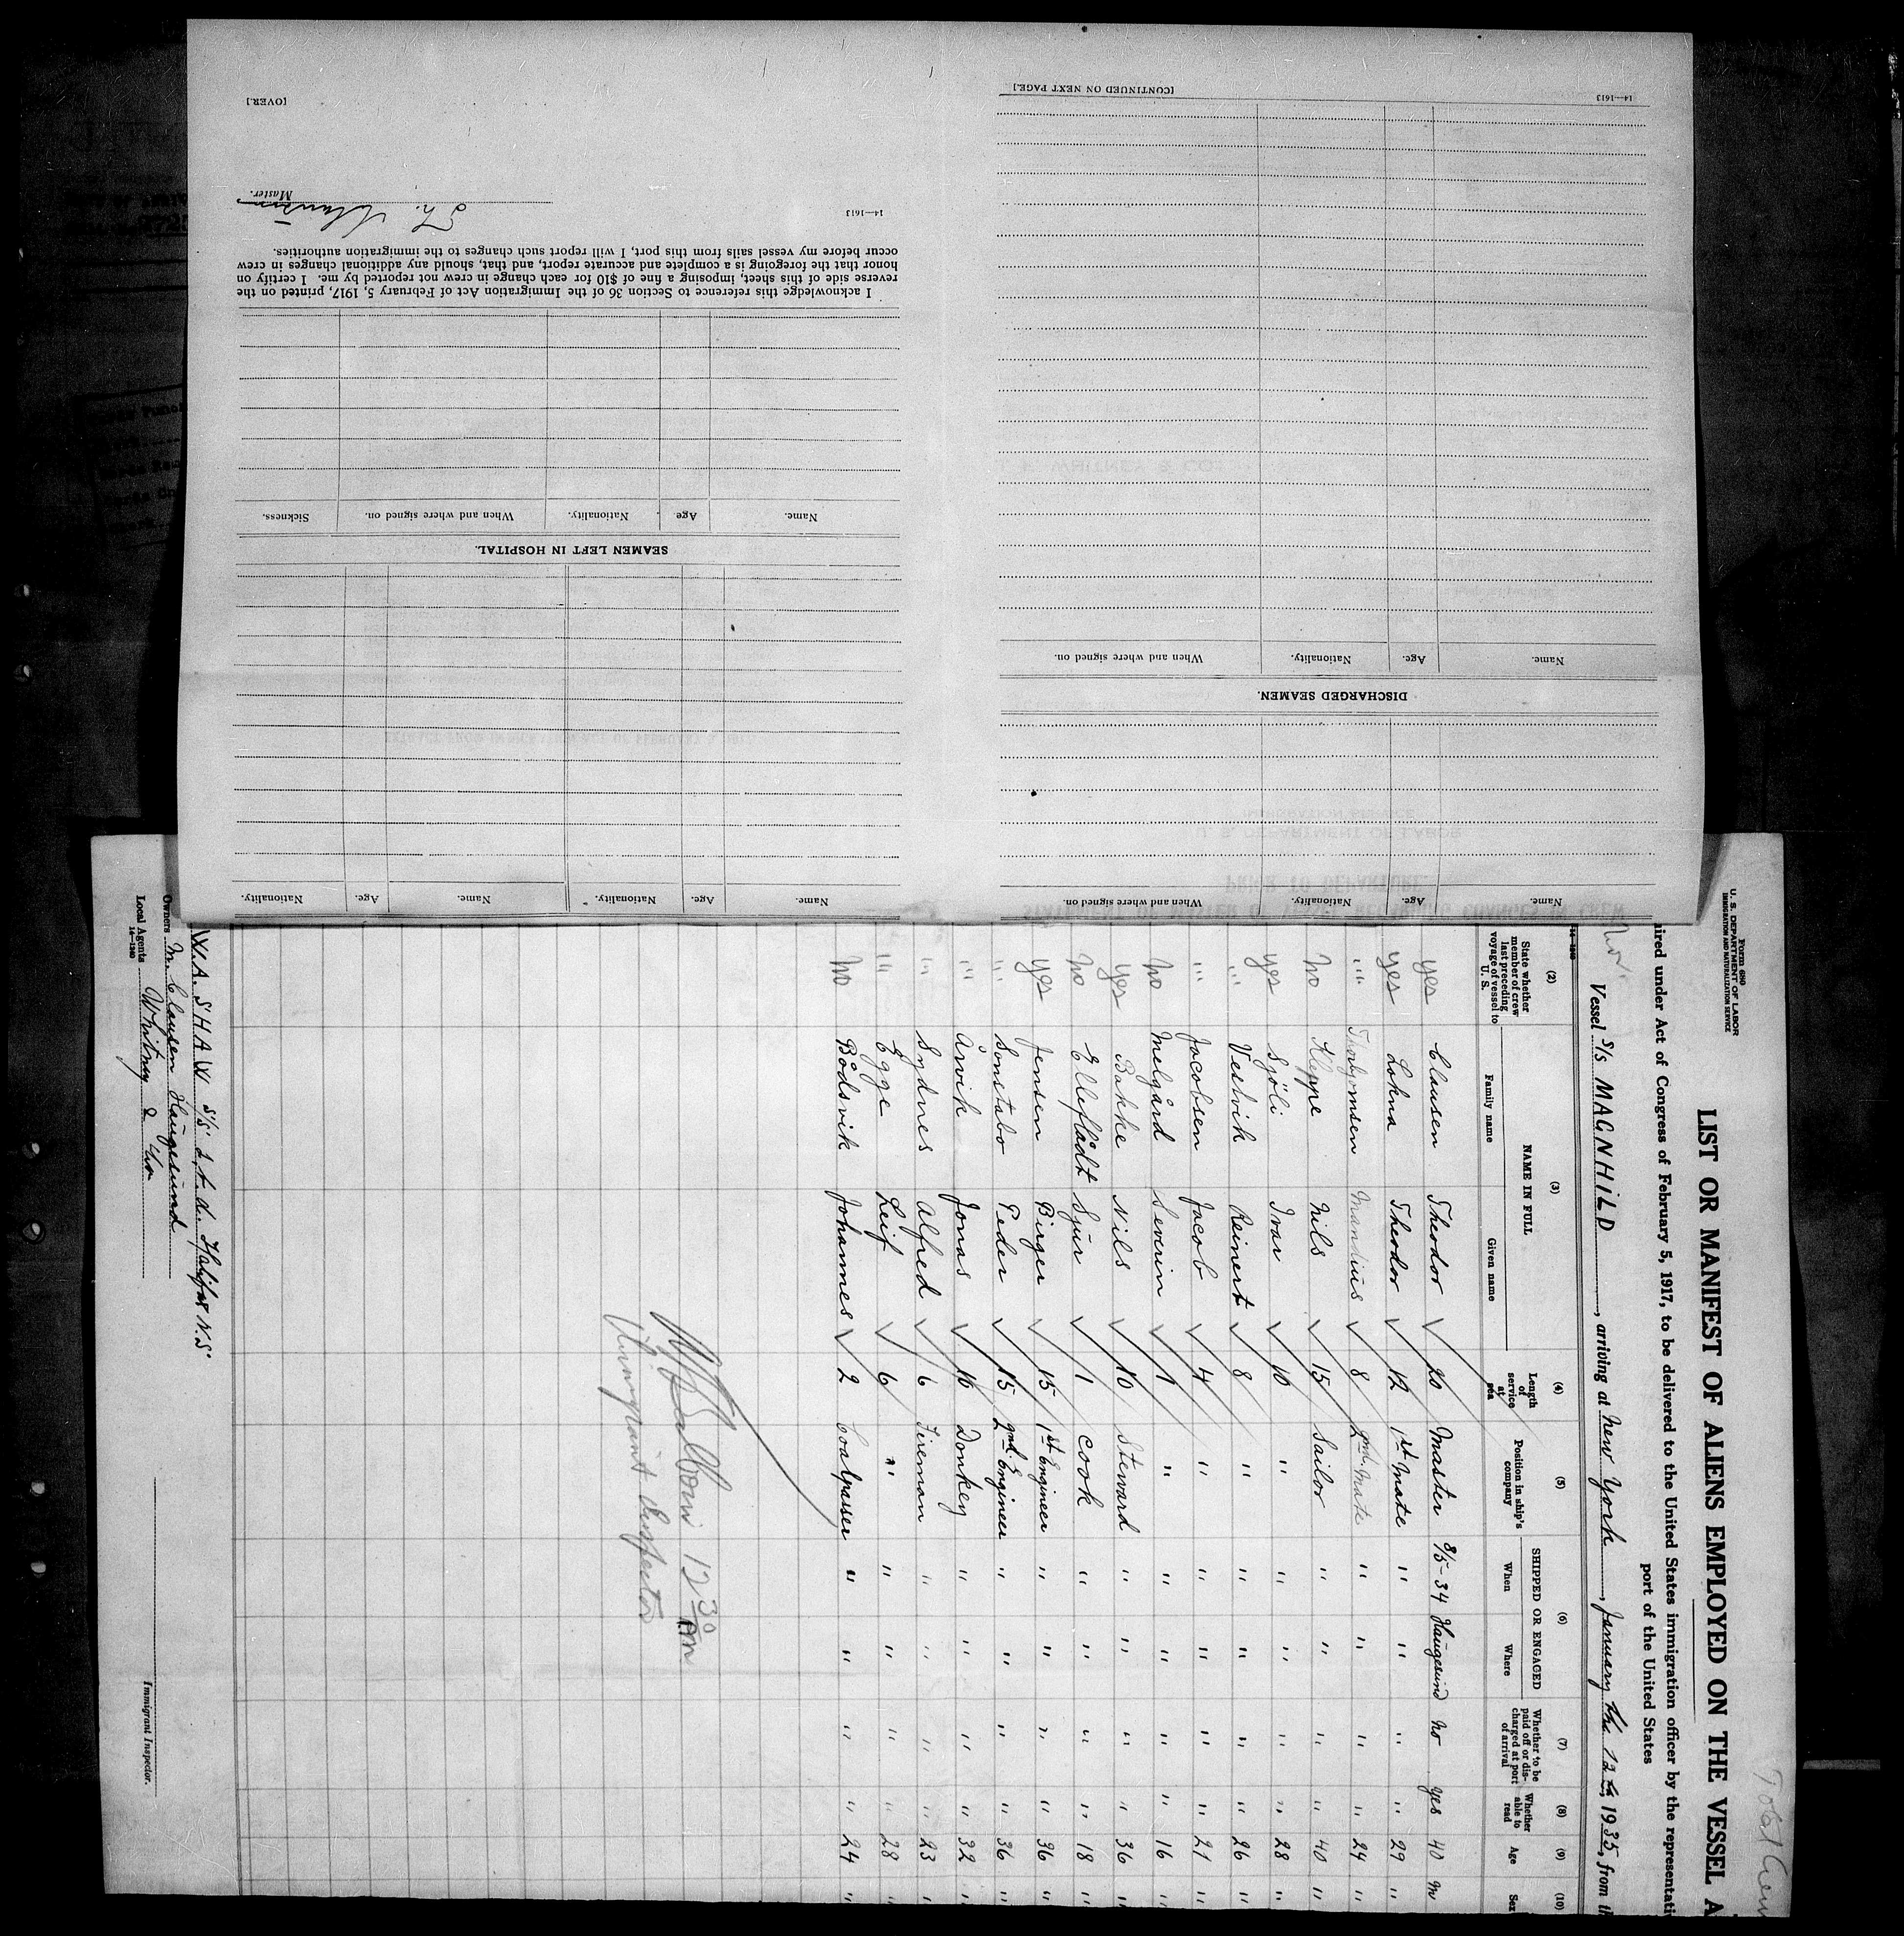 [OVER.]
Th. Clausen
Master.
14—1613
I acknowledge this reference to Section 36 of the Immigration Act of February 5, 1917, printed on the
reverse side of this sheet, imposing a fine of $10 for each change in crew not reported by me. I certify on
honor that the foregoing is a complete and accurate report, and that, should any additional changes in crew
occur before my vessel sails from this port, I will report such changes to the immigration authorities.
Name. Age. Nationality. When and where signed on. Sickness.
SEAMEN LEFT IN HOSPITAL.
Name. Age. Nationality. Name. Age. Nationality.
[CONTINUED ON NEXT PAGE.]
14—1613
Name. Age. Nationality. When and where signed on.
DISCHARGED SEAMEN.
Name. Age. Nationality. When and where signed on.
Form 680
U. S. DEPARTMENT OF LABOR
IMMIGRATION AND NATURALIZATION SERVICE
Total Crew
LIST OR MANIFEST OF ALIENS EMPLOYED ON THE VESSEL A
ired under Act of Congress of February 5, 1917, to be delivered to the United States immigration officer by the representati
port of the United States
Nor.
Vessel S/S MAGNHILD, arriving at New York, January the 12th, 1935, from th
(2) (3) (4) (5) (6) (7) (8) (9) (10)
State whether member of crew last preceding voyage of vessel to U. S.
NAME IN FULL
Family name Given name
Length of service at sea
Position in ship's company
SHIPPED OR ENGAGED
When Where
Whether to be paid off or discharged at port of arrival
Whether able to read
Age
Sex
yes Clausen Theodor ✓ 20 Master 8/5-34 Haugesund no yes 40 m
yes Lokna Theodor ✓ 12 1st Mate " " " " 29 "
" Thorbjornsen Mantius ✓ 8 2nd Mate " " " " 24 "
no Kleppe Nils ✓ 15 Sailor " " " " 40 "
yes Sjöli Ivar ✓ 10 " " " " " 28 "
" Vestvik Reinert ✓ 8 " " " " " 26 "
" Jacobsen Jacob ✓ 4 " " " " " 21 "
no Melgård Severin ✓ 1 " " " " " 16 "
yes Bakke Nils ✓ 10 Steward " " " " 36 "
no Elleflådt Sjur ✓ 1 Cook " " " " 18 "
yes Jensen Birger ✓ 15 1st Engineer " " " " 36 "
" Sonstabo Peder ✓ 15 2nd Engineer " " " " 36 "
" Årvik Jonas ✓ 10 Donkey " " " " 32 "
" Sydnes Alfred ✓ 6 Fireman " " " " 23 "
" Egge Leif ✓ 6 " " " " " 28 "
no Bådsvik Johannes ✓ 2 Coalpasser " " " " 24 "
12 30 PM
Immigrant Inspector
W.A. SHAW S/S Ltd. Halifax N.S.
Owners M. Clausen Haugesund
Local Agents Whitney & Co
14—1240
Immigrant Inspector.